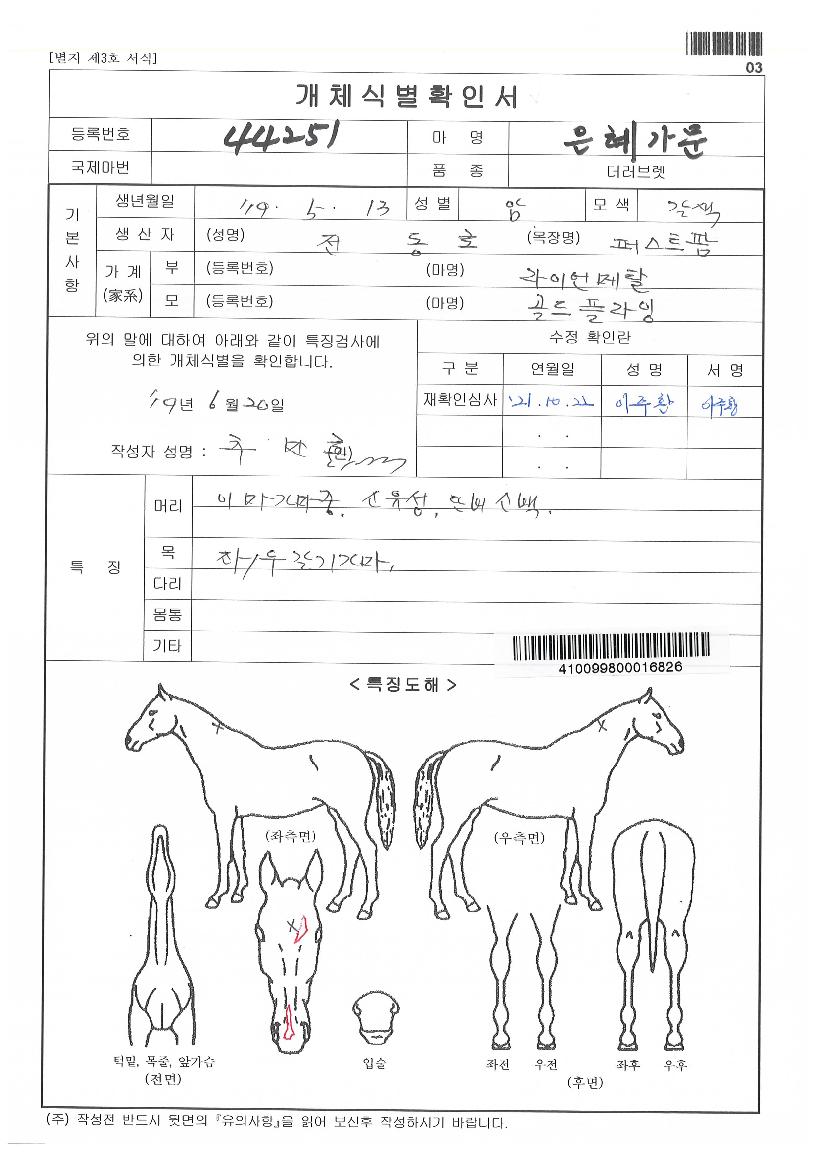 [별지 제3호 서식]
03
개체식별확인서
등록번호 44251 마 명 은혜가문
국제마번 품 종 더러브렛
기본사항
생년월일 '19. 5. 13 성별 암 모색 갈색
생산자 (성명) 전동호 (목장명) 퍼스트팜
가계 (家系) 부 (등록번호) (마명) 라이언메탈
모 (등록번호) (마명) 골드플라잉
위의 말에 대하여 아래와 같이 특징검사에
의한 개체식별을 확인합니다.
'19년 6월 20일
작성자 성명 : (인)
수정 확인란
구분 연월일 성명 서명
재확인심사 '21.10.22 이주환 이주환
. .
. .
특 징
머리 이마가마중, 소유성, 비소백.
목 좌/우 갈기가마,
다리
몸통
기타
410099800016826
< 특징도해 >
(좌측면) (우측면)
턱밑, 목줄, 앞가슴
(전면)
입술
좌전 우전 좌후 우후
(후면)
(주) 작성전 반드시 뒷면의 『유의사항』을 읽어 보신후 작성하시기 바랍니다.